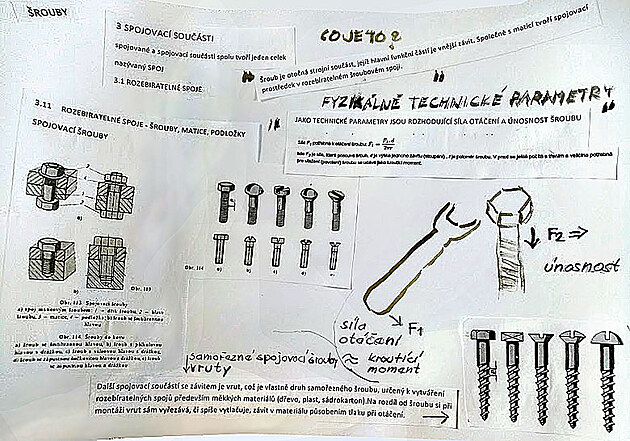 ŠROUBY
3 SPOJOVACÍ SOUČÁSTI
spojované a spojovací součásti spolu tvoří jeden celek
nazývaný SPOJ
3.1 ROZEBIRATELNÉ SPOJE
CO JE TO?
Šroub je otočná strojní součást, jejíž hlavní funkční částí je vnější závit. Společně s maticí tvoří spojovací
prostředek v rozebíratelném šroubovém spoji.
FYZIKÁLNĚ TECHNICKÉ PARAMETRY
JAKO TECHNICKÉ PARAMETRY JSOU ROZHODUJÍCÍ SÍLA OTÁČENÍ A ÚNOSNOST ŠROUBU
Síla F₁ potřebná k otáčení šroubu: F₁ =
3.11 ROZEBIRATELNÉ SPOJE - ŠROUBY, MATICE, PODLOŽKY
SPOJOVACÍ ŠROUBY
a)
b)
Obr. 113
Obr. 114 a) b) c) d) e)
Obr. 113. Spojovací šrouby
a) spoj maticovým šroubem; 1 – dřík šroubu, 2 – hlava
šroubu, 3 – matice, 4 – podložka; b) šroub se šestihrannou
hlavou
Obr. 114. Šrouby do kovu
a) šroub se šestihrannou hlavou, b) šroub s půlkulovou
hlavou s drážkou, c) šroub s válcovou hlavou s drážkou,
d) šroub se zápustnou hlavou s drážkou, e) šroub se
zápustnou hlavou s drážkou
F₂ ⇒
únosnost
F₁
síla
otáčení
≈ kroutící
moment
samořezné spojovací šrouby
vruty
Další spojovací součástí se závitem je vrut, což je vlastně druh samořezného šroubu, určený k vytváření
rozebíratelných spojů především měkkých materiálů (dřevo, plast, sádrokarton).Na rozdíl od šroubu si při
montáži vrut sám vyřezává, či spíše vytlačuje, závit v materiálu působením tlaku při otáčení.